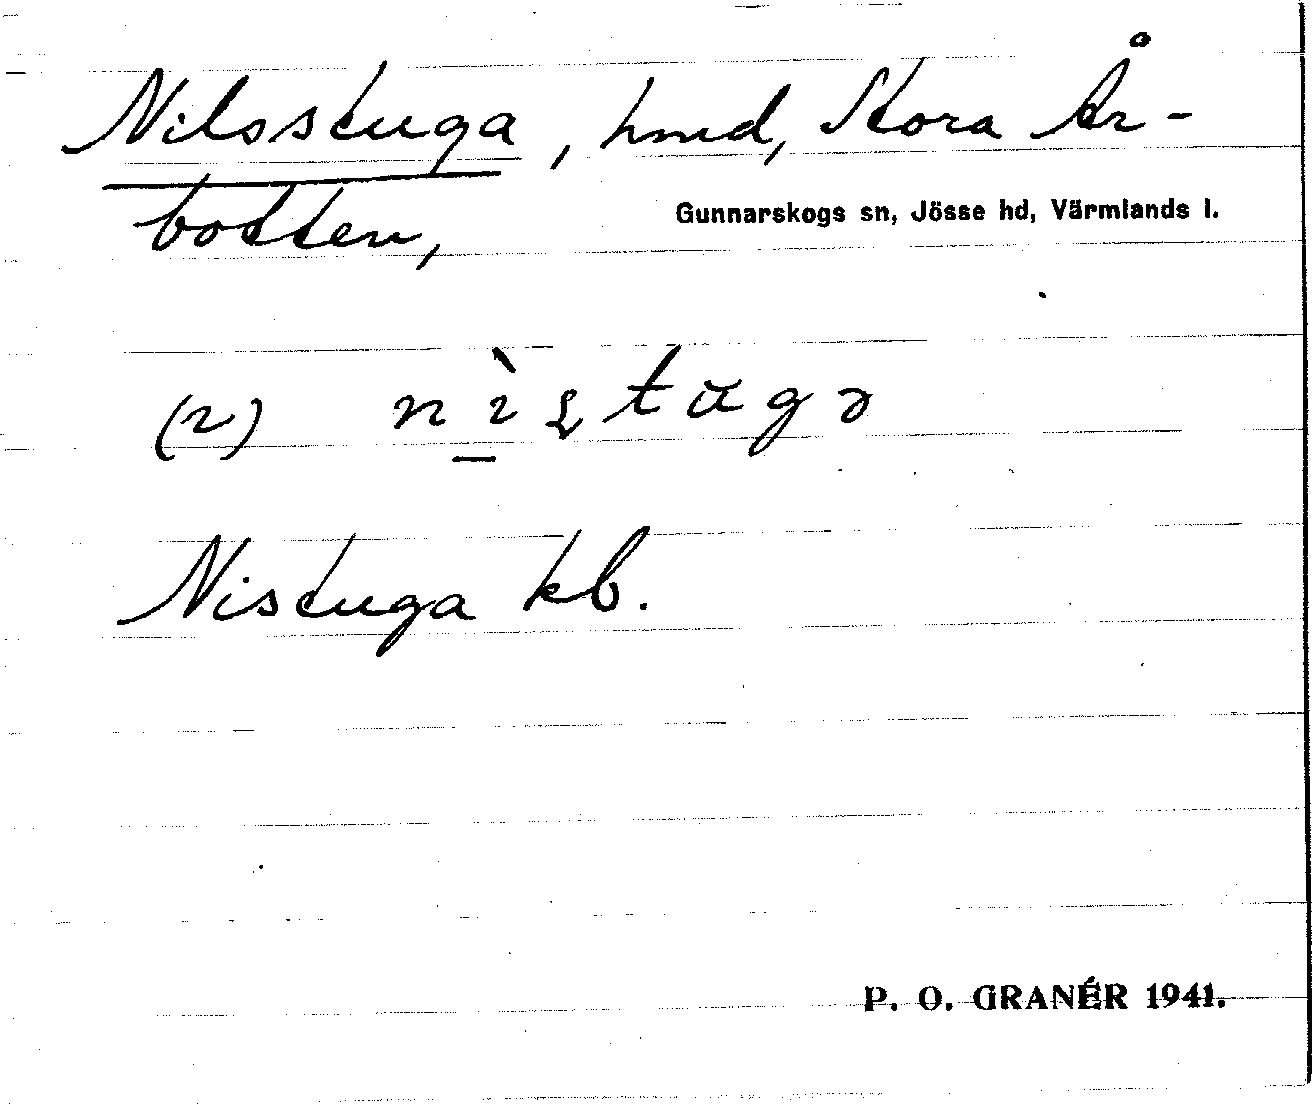 Nilsstuga, hmd, Stora År-
botten,
Gunnarskogs sn, Jösse hd, Värmlands l.
(2) nìʂtugə
Nistuga kb.
P. O. GRANÉR 1941.